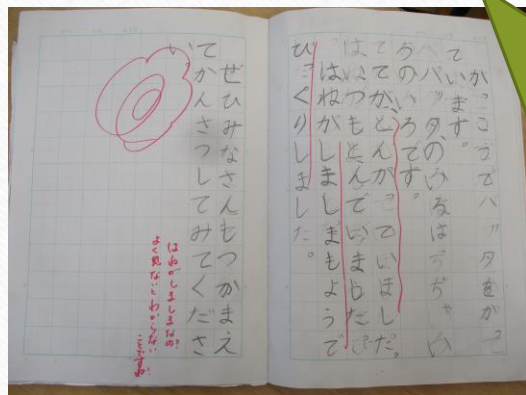 がっこうでバッタをかっ
ています。
バッタのいろは
のいろです。
てがとんがっていました。
はいつもとんでいました。
はねがしましまもようで
びっくりしました。
ぜひみなさんもつかまえ
てかんさつしてみてくださ
い。
はねがしましまなの
よく見ないとわからない
ことですね